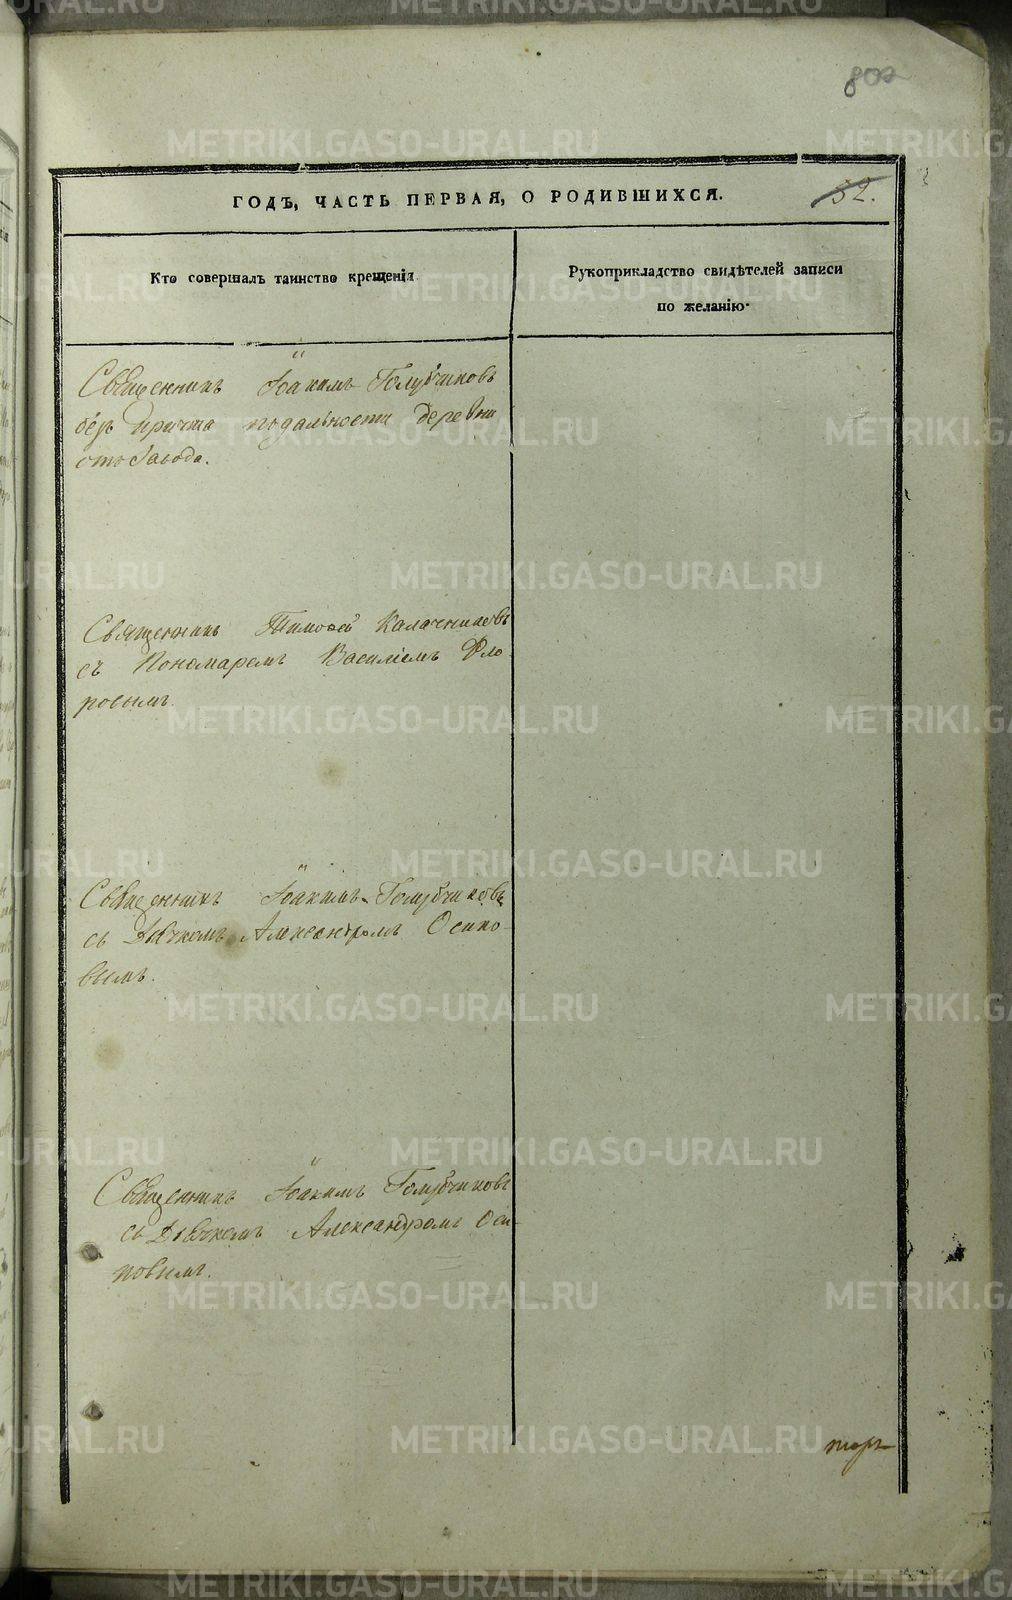 802
ГОДЪ, ЧАСТЬ ПЕРВАЯ, О РОДИВШИХСЯ.
52.
Кто совершалъ таинство крещенія
Рукоприкладство свидѣтелей записи
по желанію.
Священникъ Іоакимъ Голубчиковъ
безъ причта подальности деревни
отъ завода.
Священникъ Тимофей Калачниковъ
съ Пономаремъ Василіемъ Фло
ровымъ.
Священникъ Іоакимъ Голубчиковъ
съ Дьячкомъ Александромъ Осипо-
вымъ.
Священникъ Іоакимъ Голубчиковъ
съ Дьячкомъ Александромъ Оси-
повымъ.
METRIKI.GASO-URAL.RU